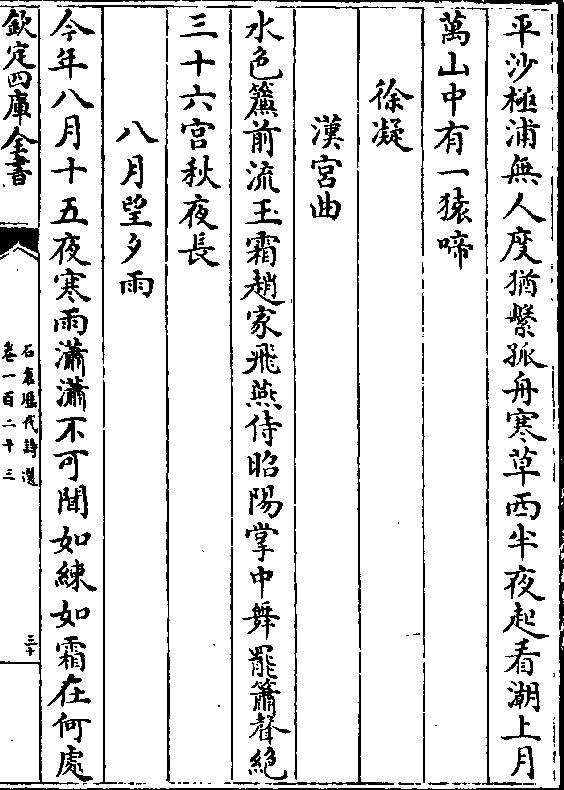 平沙極浦無人度猶繫孤舟寒草西半夜起看潮上月
萬山中有一猿啼
徐凝
漢宮曲
水色簾前流玉霜趙家飛燕侍昭陽掌中舞罷簫聲絶
三十六宮秋夜長
八月望夕雨
今年八月十五夜寒雨瀟瀟不可聞如練如霜在何處
欽定四庫全書
石倉歷代詩選
卷一百二十三
三十